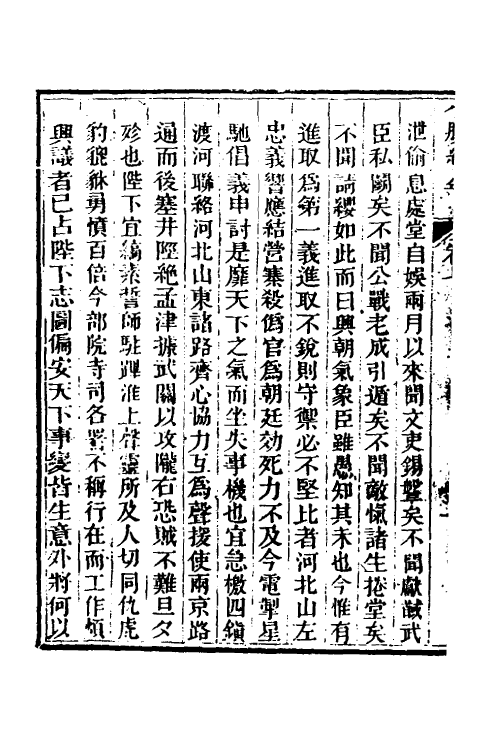 泄偷息處堂自娛兩月以來聞文吏錫鞶矣不聞獻馘武
臣私鬭矣不聞公戰老成引遁矣不聞敵愾諸生捲堂矣
不聞請纓如此而曰興朝氣象臣雖愚知其未也今惟有
進取爲第一義進取不銳則守禦必不堅比者河北山左
忠義響應結營寨殺僞官爲朝廷効死力不及今電掣星
馳倡義申討是靡天下之氣而坐失事機也宜急檄四鎭
渡河聯絡河北山東諸路齊心協力互爲聲援使兩京路
通而後塞井陘絕孟津據武關以攻隴右恐賊不難旦夕
殄也陛下宜縞素誓師駐蹕淮上聲靈所及人切同仇虎
豹貔貅勇憤百倍今部院寺司各署不稱行在而工作煩
興議者已占陛下志圖偏安天下事變皆生意外將何以